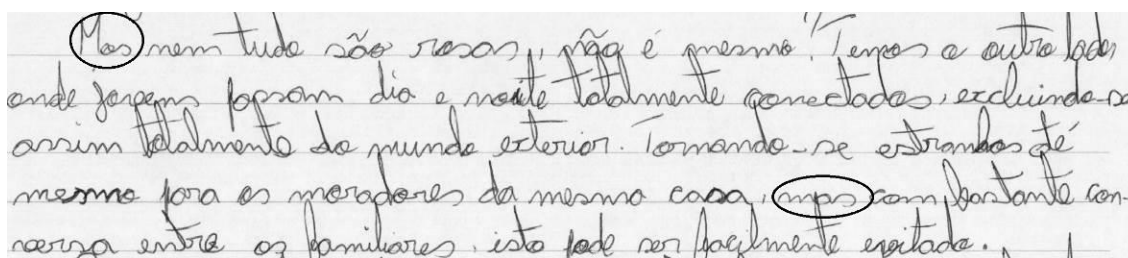 Mas nem tudo são rosas, não é mesmo? Temos o outro lado,
onde jovens passam dia e noite totalmente conectados, excluindo-se
assim totalmente do mundo exterior. Tornando-se estranhos até
mesmo para os moradores da mesma casa, mas com bastante con-
versa entre os familiares, isto pode ser facilmente evitado.